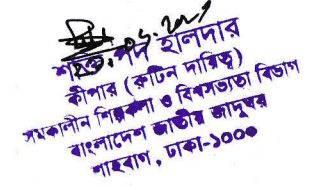 ২৩.০৬.২০২১
পদ হালদার
কীপার (রুটিন দায়িত্ব)
সমকালীন শিল্পকলা ও বিশ্বসভ্যতা বিভাগ
বাংলাদেশ জাতীয় জাদুঘর
শাহবাগ, ঢাকা-১০০০